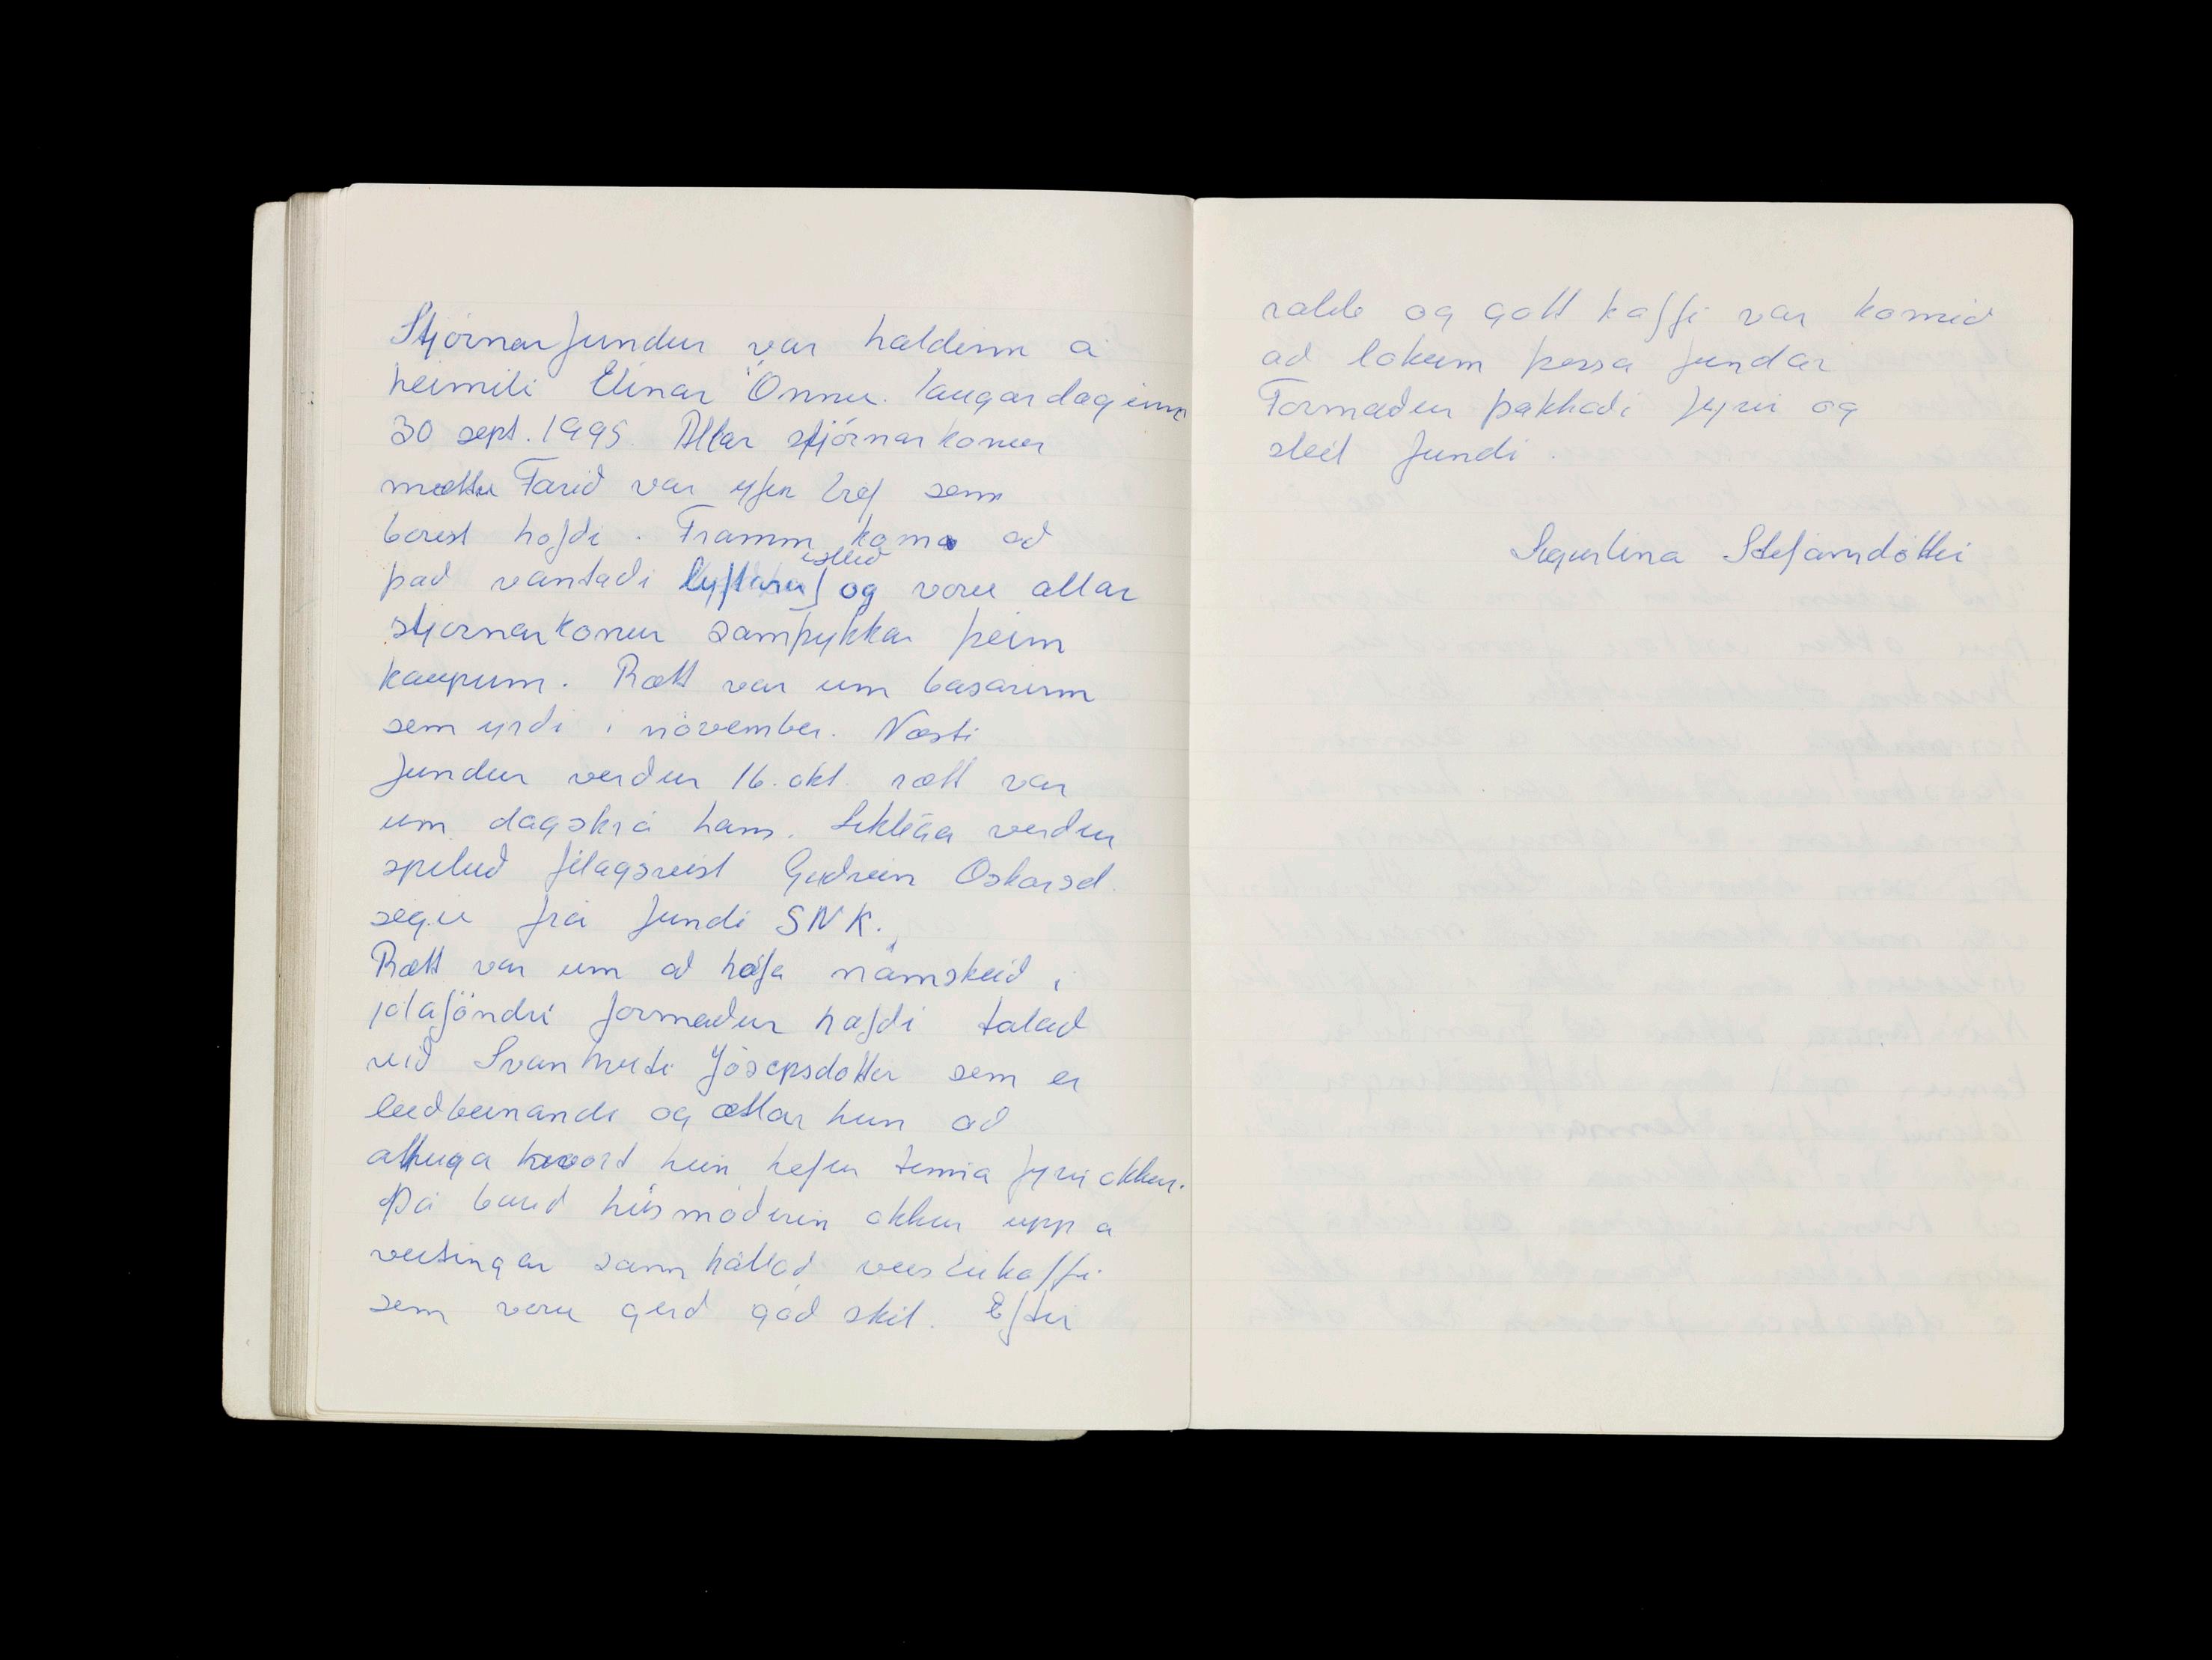 Stjórnarfundur var haldinn á
heimili Elínar Önnu. laugardaginn
30 sept. 1995. Allar stjórnarkonur
mættu Farið var yfir bréf sem
borist hafði. Framm kom að
það vantaði lyftara í sláið og voru allar
stjornarkonur samþykkar þeim
kaupum. Rætt var um basarinn
sem yrði i nóvember. Næsti
fundur verður 16. okt. rætt var
um dagskrá hans. verður
spiluð félagsvist Guðrún Oskarsd.
segir frá fundi SNK.
Rætt var um að hafa námskeið i
jólaföndri formaður hafði talað
við Svanhviti Jósepsdottir sem er
leiðbeinandi og ætlar hun að
athuga hvort hún hefur timia fyrir okkur.
Þá bauð húsmóðirin okkur upp a
veitingar sannkállað veislukaffi
sem voru gerð góð skil. Eftir
rabb og gott kaffi var komið
að lokum þessa fundar
Formaður þakkaði fyrir og
sleit fundi.
Sigurlina Stefansdóttir